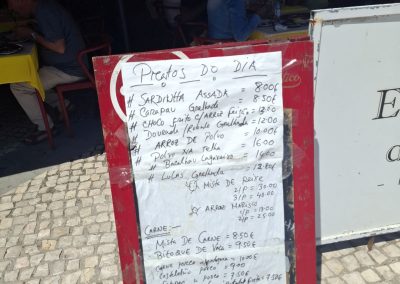 PRATOS DO DIA
# SARDINHA ASSADA = 8.00€
# CARAPAU Grelhado = 8.50€
# CHOCO frito c/ARROZ feijão = 13.50
# Dourada / Robalo Grelhado = 12.00
# ARROZ DE POLVO = 10.00€
# POLVO NA telha = 16.00
# Bacalhau = 14.00
# LULAS Grelhada = 12.80€
MISTA DE PEIXE
2/P = 30.00
3/P = 40.00
ARROZ MARISCO
1/P = 13.00
2/P = 25.00
CARNE:-
MISTA DE CARNE = 8.50€
BITOQUE DE VACA = 9.50€
carne porco = 10.00€
porco = 9.00
= 7.50€
7.50€
E